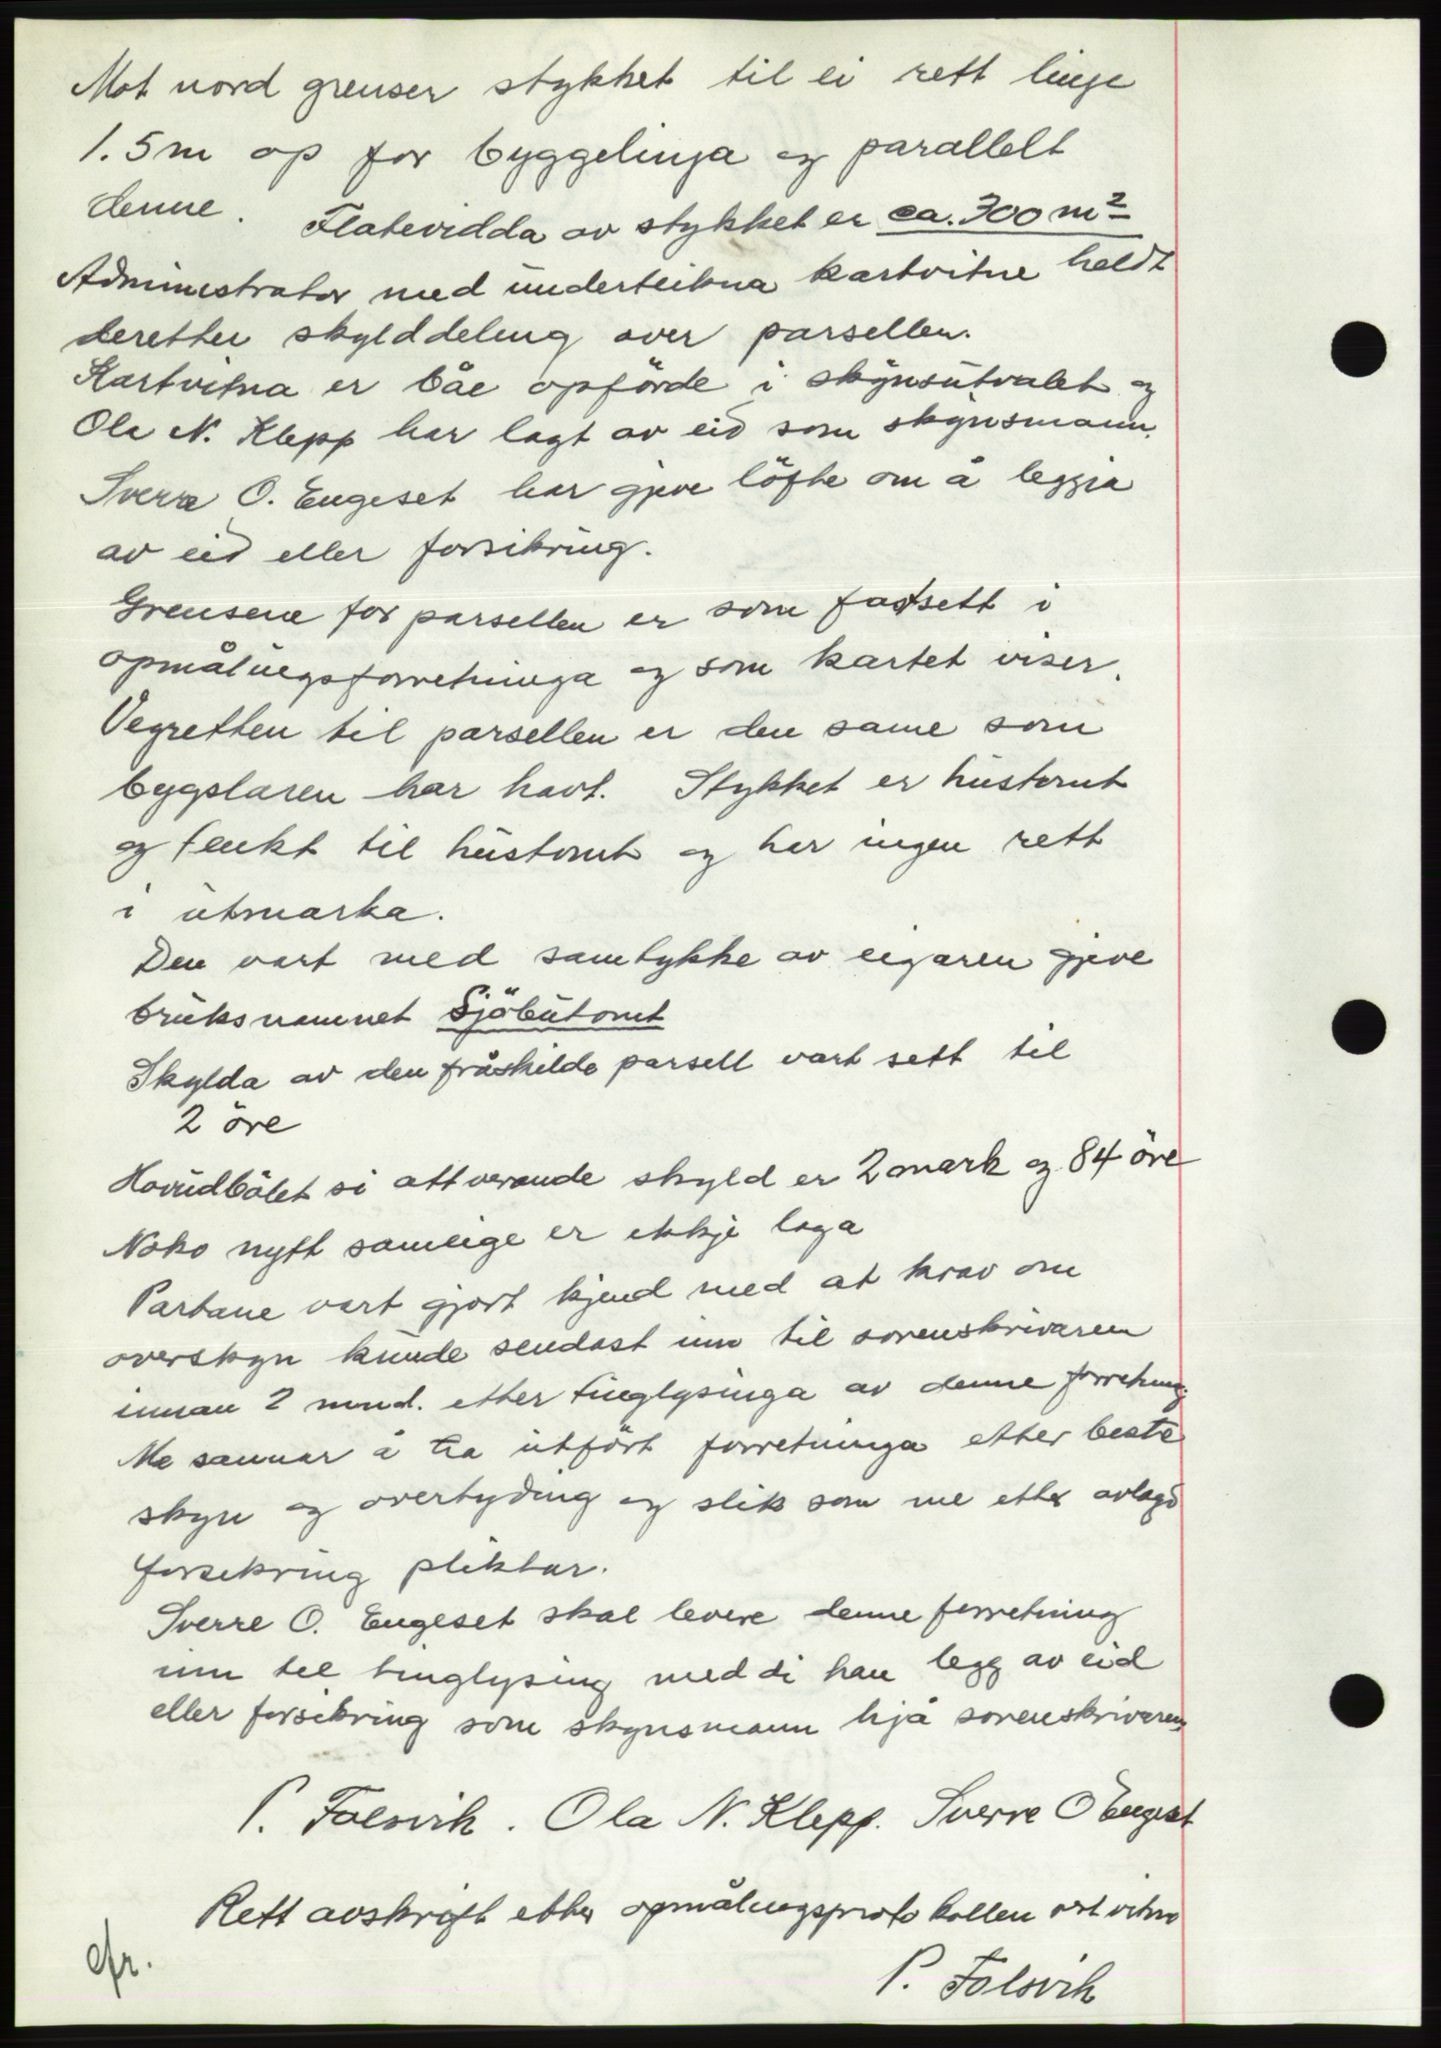 Mot nord grenser stykket til ei rett linje
1.5 m op for byggelinja og parallelt
denne. Flatevidda av stykket er ca. 700 m²
Administrator med underteikna kartvitne heldt
deretter skylddeling over parsellen.
Kartvitna er båe opförde i skynsutvalet og
Ola N. Klepp har lagt av eid som skynsmann.
Sverre O. Engeset har gjeve löfte om å leggja
av eid eller forsikring.
Grensene for parsellen er som fastsett i
opmålingsforretninga og som kartet viser.
Vegretten til parsellen er den same som
bygslaren har havt. Stykket er hustomt
og tenkt til hustomt og har ingen rett
i utmarka.
Den vart med samtykke av eigaren gjeve
bruksnamnet Sjöbutomt
Skylda av den fråskilde parsell vart sett til
2 öre
Hovudbölet si attverande skyld er 2 mark og 84 öre
Noko nytt sameige er ikkje laga
Partane vart gjort kjend med at krav om
overskyn kunde sendast inn til sorenskrivaren
innan 2 mnd. etter tinglysinga av denne forretning.
Me sannar å ha utfört forretninga etter beste
skyn og overtyding og slik som me etter avlagd
forsikring pliktar.
Sverre O. Engeset skal levere denne forretning
inn til tinglysing med di han legg av eid
eller forsikring som skynsmann hjå sorenskrivaren
P. Folsvik. Ola N. Klepp. Sverre O Engeset
Rett avskrift etter opmålingsprotokollen vitne
P. Folsvik
cfr.